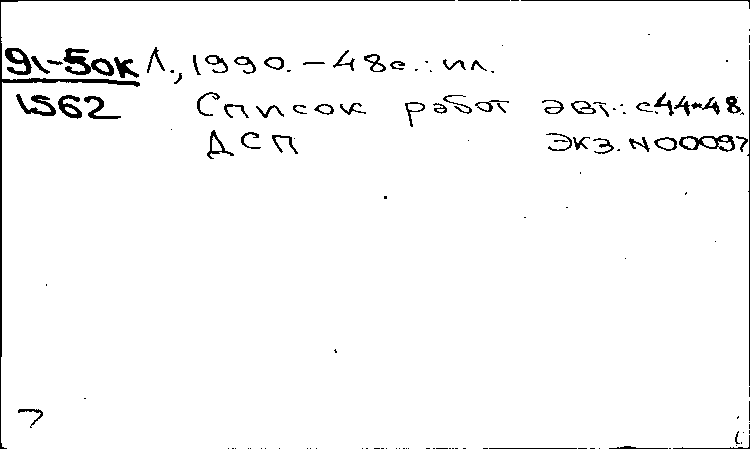 91-50к Л., 1990. - 48с.: ил.
1562 Список работ авт.: с.44-48.
ДСП Экз. N00097